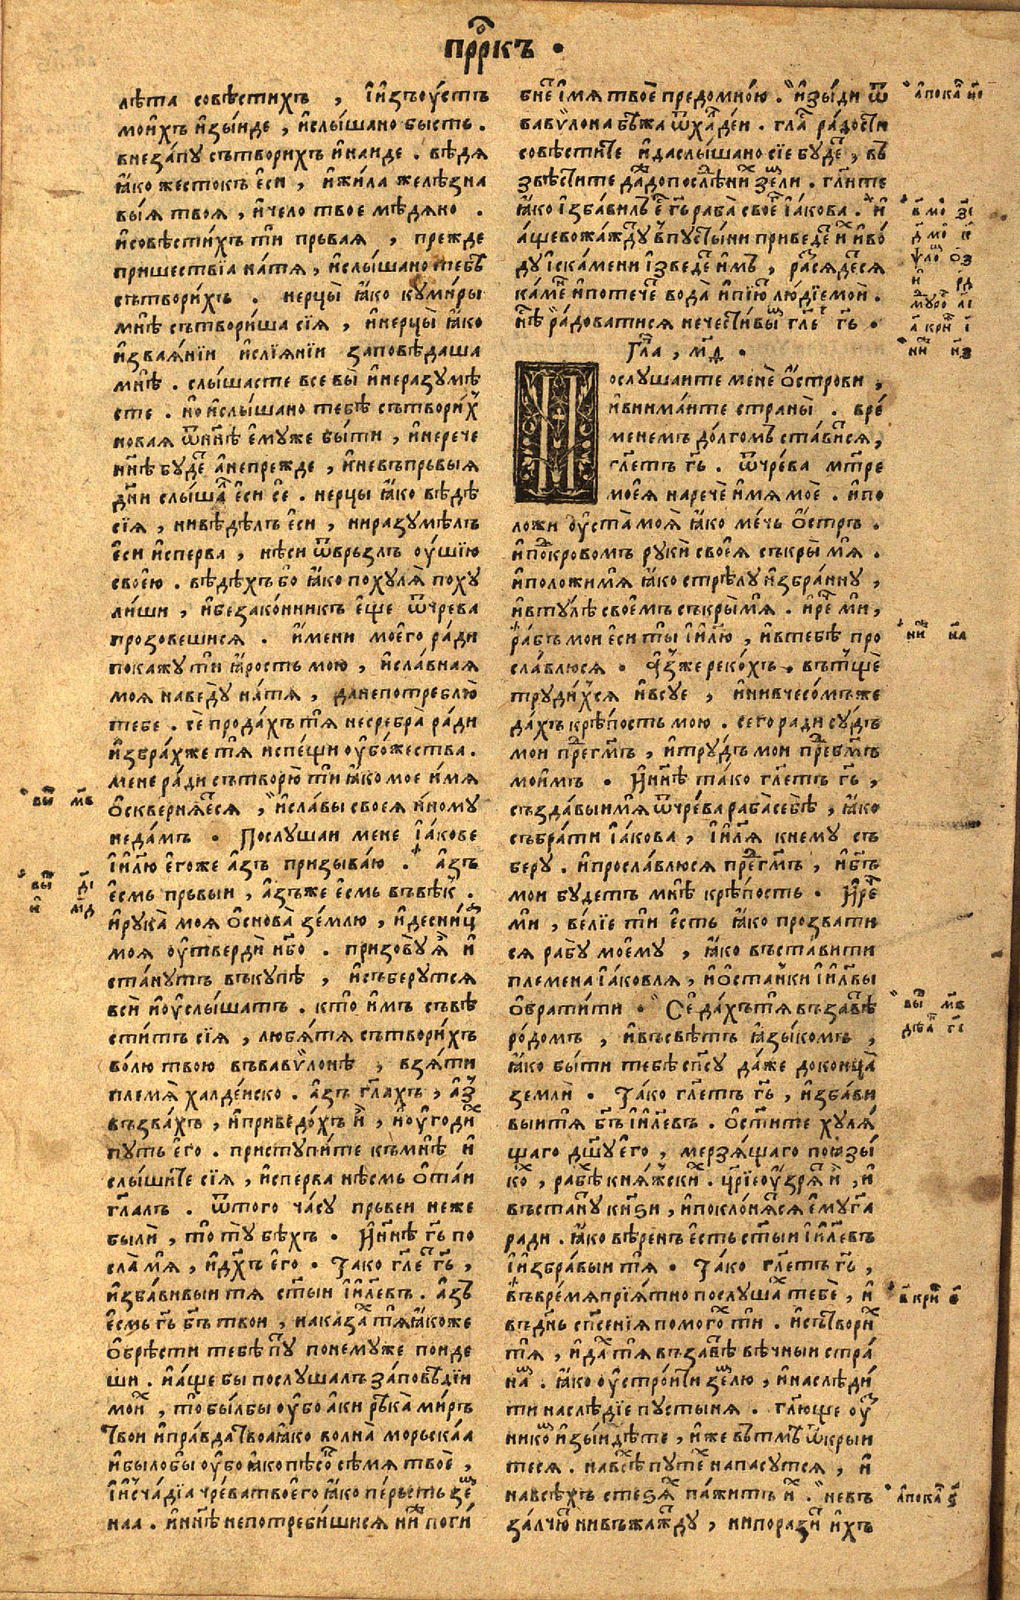 прⷪ҇ркъ ·
лѣта совѣстихъ , и҆изъоу҆стъ
мои҆хъ и҆зы́иде , и҆слы́шано бысть .
внеза́пу сътворихъ и҆наиде . вѣдя
ꙗ҆́ко жестокъ є҆си , и҆жи́ла желѣзна
вы́я твоя̀ , и҆чело твое мѣдяно .
и҆совѣсти́хъ ти прьвая , прежде
пришествїа на́тя , и҆слы́шано тебѣ
сътвори́хъ . нерцы̀ ꙗ҆́ко куми́ры
мнѣ̀ сътвори́ша сїя , и҆нерцы̀ ꙗ҆ко
и҆звая́нїи и҆слїя́нїи заповѣдаша
мнѣ̀ . слы́шасте все вы̀ и҆неразумѣ̀
сте . но и҆слы́шано тебѣ̀ сътвори́хⸯ
новая ѿнн҃ѣ є҆муже бы́ти , и҆нерече
нн҃ѣ буде а҆непрежде , и҆невъпрьвыя
дн҃и слы́ша є҆сѝ сѐ . нерцы ꙗ҆ко вѣдѣ̀
сїя , нивѣ́дѣлъ є҆си , ниразумѣлъ
є҆си и҆сперва , нѣси ѿврьзлъ оу҆́шїю
своє́ю . вѣдѣхъ бо ꙗ҆́ко похуля̀ поху
ли́ши , и҆безако́нникъ є҆ще ѿчрева
прозовешися . и҆мени моего ра́ди
покажу ти ꙗ҆́рость мою , и҆сла́вная
моя наведу на́тя , данепотреблю̀
тебе . се прода́хъ тя несребра̀ ра́ди
и҆збра́хже тя испе́щи оу҆бо́жества .
мене ра́ди сътворю̀ ти ꙗ҆ко мое и҆мя
о҆скверня́ется , и҆сла́вы своея и҆ному
неда́мъ . Послушаи мене і҆а́кове
і҆и҃лю є҆гоже а҆зъ призыва́ю . а҆зъ
є҆смь прьвыи , а҆зъже є҆смь въвѣк .
и҆рука̀ моя̀ о҆снова̀ зе́млю , и҆десниц
моя оу҆тверди нб҃о . призову ꙗ҆ и҆
ста́нутъ въкупѣ , и҆съберутся
всѝ и҆оу҆слы́шатъ . кто и҆мъ съвѣ
сти́тъ сїя , любя́тя сътвори́хъ
волю твою въвавѷлонѣ , взя́ти
племя̀ халде́иско . а҆зъ гл҃ахъ , а҆зⸯ
възва́хъ , и҆приведо́хъ и҆ , и҆оу҆годи
путь є҆го . приступи́те къмнѣ и҆
слы́шите сїя , и҆сперва нѣ́смь о҆та́и
гл҃алъ . ѿтого ча́су прьвеи неже
были̂ , то ту бѣхъ . И҆нн҃ѣ гь҃ по
сла̀ мя , и҆дх҃ъ є҆го . Та́ко гл҃е гь҃ ,
и҆зба́вивыи тя ст҃ыи і҆и҃левъ . а҆зъ
є҆смь гь҃ бг҃ъ твои , наказа тя ꙗ҆́коже
о҆брѣсти тебѣ пу понемуже поиде
ши . и҆а҆ще бы послушалъ за́повѣдїи
мои , то бы́лбы оу҆бо а҆ки рѣка̀ ми́ръ
твои и҆пра́вда твоа ꙗ҆ко волна̀ морьска́а
и҆былобы оу҆бо ꙗ҆ко пѣсо сѣмя твоѐ ,
и҆и҆сча́дїа чре́ва твоего ꙗ҆ко пе́рьсть зе
наа . и҆нн҃ѣ непотреби́шися нн҃ѣ поги
бне и҆мя твоѐ предомно́ю . и҆зы́ди ѿ
вавѷлона бѣжа ѿхалде́и . гла ра́дости
совѣстите и҆даслы́шано сїе буде , въ
звѣстите да́же допослѣ́дних зе́мли . гл҃ите
ꙗ҆ко і҆зба́вилъ є҆ гь҃ раба̀ свое і҆а́кова . и҆
а҆щевожа́жду впусты́ни приведе и҆ и҆во́
ду і҆ска́мени і҆зведе имъ , разся́деся
ка́мень и҆потечѐ вода̀ и҆пїю лю́дїемои .
нѣ ра́доватися нечести́вы гл҃е гь҃ .
Гла , м҃д .
Послушаите менѐ о҆строви ,
и҆внима́ите страны̀ . вре́
менемъ до́лгомъ ста́вися ,
гл҃етъ гь҃ . ѿчре́ва мт҃ре
моея̀ наречѐ и҆мя моѐ . и҆по
ложи оу҆ста̀ моя̀ ꙗ҆ко ме́чь о҆стръ .
и҆покровомъ руки̂ своея̀ съкры̀ мя .
и҆положи́мя ꙗ҆ко стрѣлу и҆збра́нну ,
и҆втулѣ̀ своемъ съкры́мя . и҆ре ми ,
ра́бъ мои є҆си ты і҆и҃лю , и҆втебѣ про
сла́влюся . а҆зже реко́хъ , вътще
труди́хся и҆всуе , и҆ниввечесо́мъже
да́хъ крѣ́пость мою . сего ра́ди су́дъ
мои пре́гмъ , и҆тру́дъ мои пре́бг҃мъ
мои́мъ . И҆нн҃ѣ та́ко гл҃етъ гь҃ ,
създа́выимя ѿчрева раба̀себѣ̀ , ꙗ҆ко
събра́ти і҆а́кова , і҆и҃ля кнему съ
беру . и҆просла́влюся пре́гмъ , и҆бг҃ъ
мои будетъ мнѣ крѣпость . И҆ре
ми , ве́лїе ти є҆сть ꙗ҆ко прозва́ти
ся рабу мое́му , ꙗ҆ко въста́вити
племена і҆а́ковля , и҆о҆ста́нки і҆и҃лвы
о҆брати́ти . Се да́хътя възавѣ
ро́домъ , и҆въсвѣтъ ꙗ҆зы́комъ ,
ꙗ҆ко бы́ти тебѣ̀ сп҃су да́же доконца̀
земли̂ . Та́ко гл҃етъ гь҃ , и҆зба́ви
выитя бг҃ъ і҆и҃левъ . о҆сти́те хуля́
щаго дш҃у є҆го , мерзя́щаго поꙗ҆зы́
ко , рабѣ княжски . цр҃їе оу҆зря и҆ , и҆
въстану кнѕи , и҆покло́няся є҆му га
ради . ꙗ҆ко вѣренъ є҆сть ст҃ыи і҆и҃левъ
і҆и҆збра́выи тя . Та́ко гл҃етъ гь҃ ,
въвремя прїя́тно послуша тебѐ , и҆
въдн҃ь сп҃сенїя помого ти . и҆сътвори
тя , и҆да тя възавѣ вѣ́чныи стра́
на . ꙗ҆ко оу҆стро́ити землю , и҆наслѣди́
ти наслѣдїе пусты́ня . гл҃юще оу҆
нико и҆зы́идѣте , и҆же вътмѣ ѿкрыи
теся . навсѣ путе напасутся , и҆
навсѣхъ стезя па́жить и҆ . невъ
за́лчю нивъжажду , нипорази и҆хъ
вы м҃в
вы д҃і
и м҃д
а҆пока н҃і
вы м҃в
дѣа г҃і
а҆пока ѕ҃